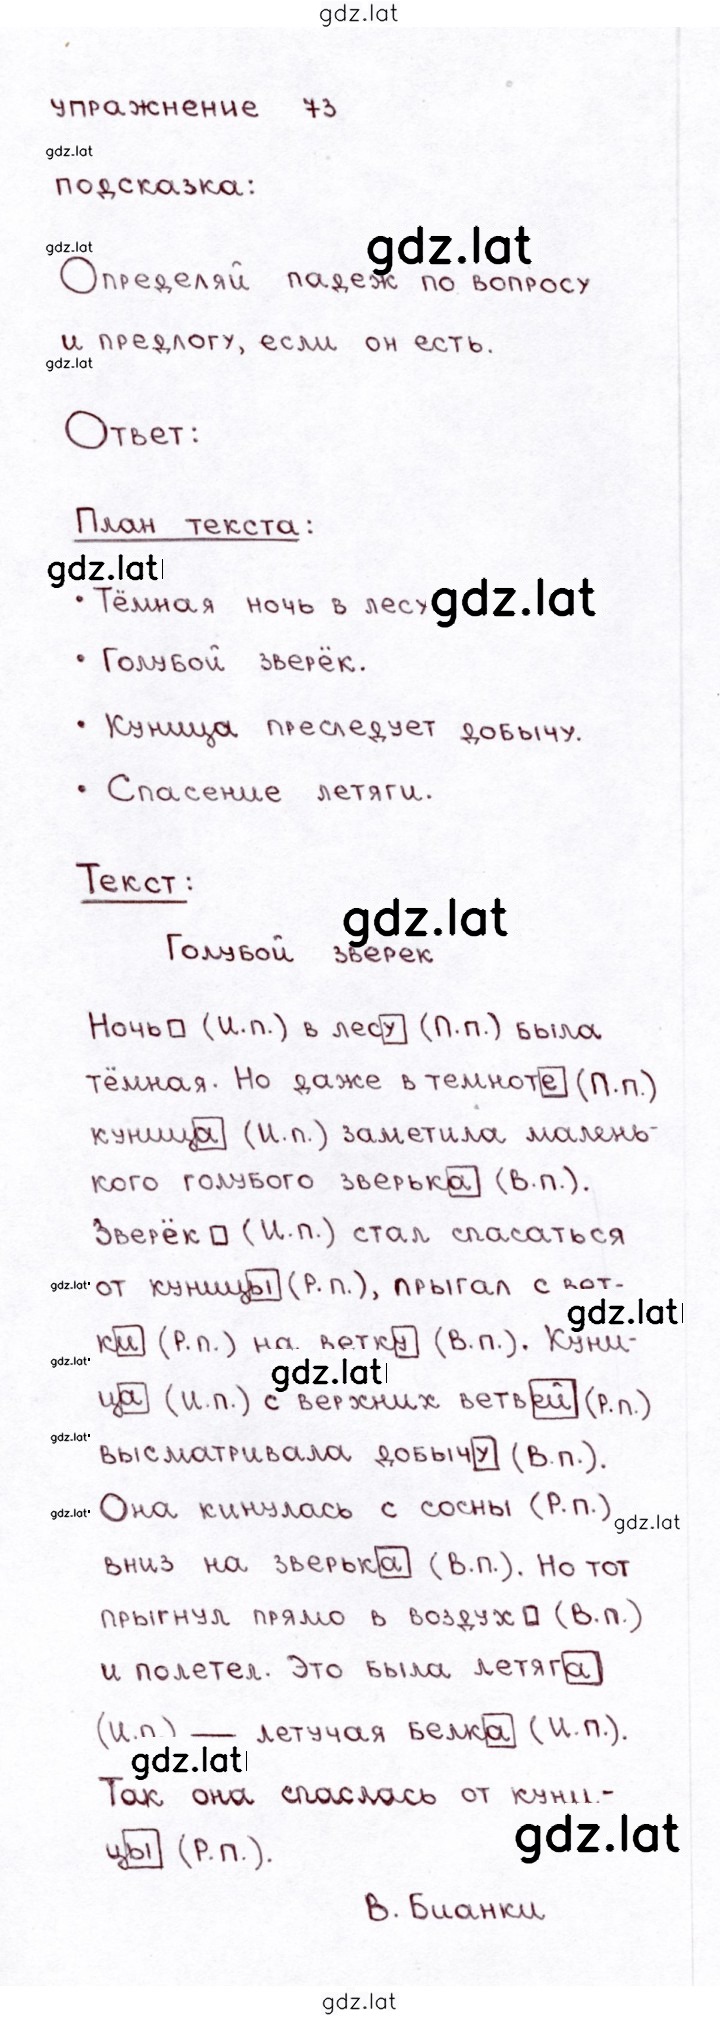 gdz.lat
упражнение 73
gdz.lat
подсказка:
gdz.lat
gdz.lat
Определяй падеж по вопросу
и предлогу, если он есть.
gdz.lat
Ответ:
План текста:
gdz.lat
• Тёмная ночь в лесу gdz.lat
• Голубой зверёк.
• Куница преследует добычу.
• Спасение летяги.
Текст:
gdz.lat
Голубой зверек
Ночь□ (И.п.) в лесу (П.п.) была
тёмная. Но даже в темноте (П.п.)
куница (И.п.) заметила малень-
кого голубого зверька (В.п.).
Зверёк□ (И.п.) стал спасаться
gdz.lat
от куницы (Р.п.), прыгал с вет-
gdz.lat
ки (Р.п.) на ветку (В.п.). Куни-
gdz.lat
gdz.lat
ца (И.п.) с верхних ветвей (Р.п.)
gdz.lat
высматривала добычу (В.п.).
gdz.lat
Она кинулась с сосны (Р.п.)
gdz.lat
вниз на зверька (В.п.). Но тот
прыгнул прямо в воздух□ (В.п.)
и полетел. Это была летяга
(И.п.) — летучая белка (И.п.).
gdz.lat
Так она спаслась от куни-
gdz.lat
цы (Р.п.).
В. Бианки
gdz.lat